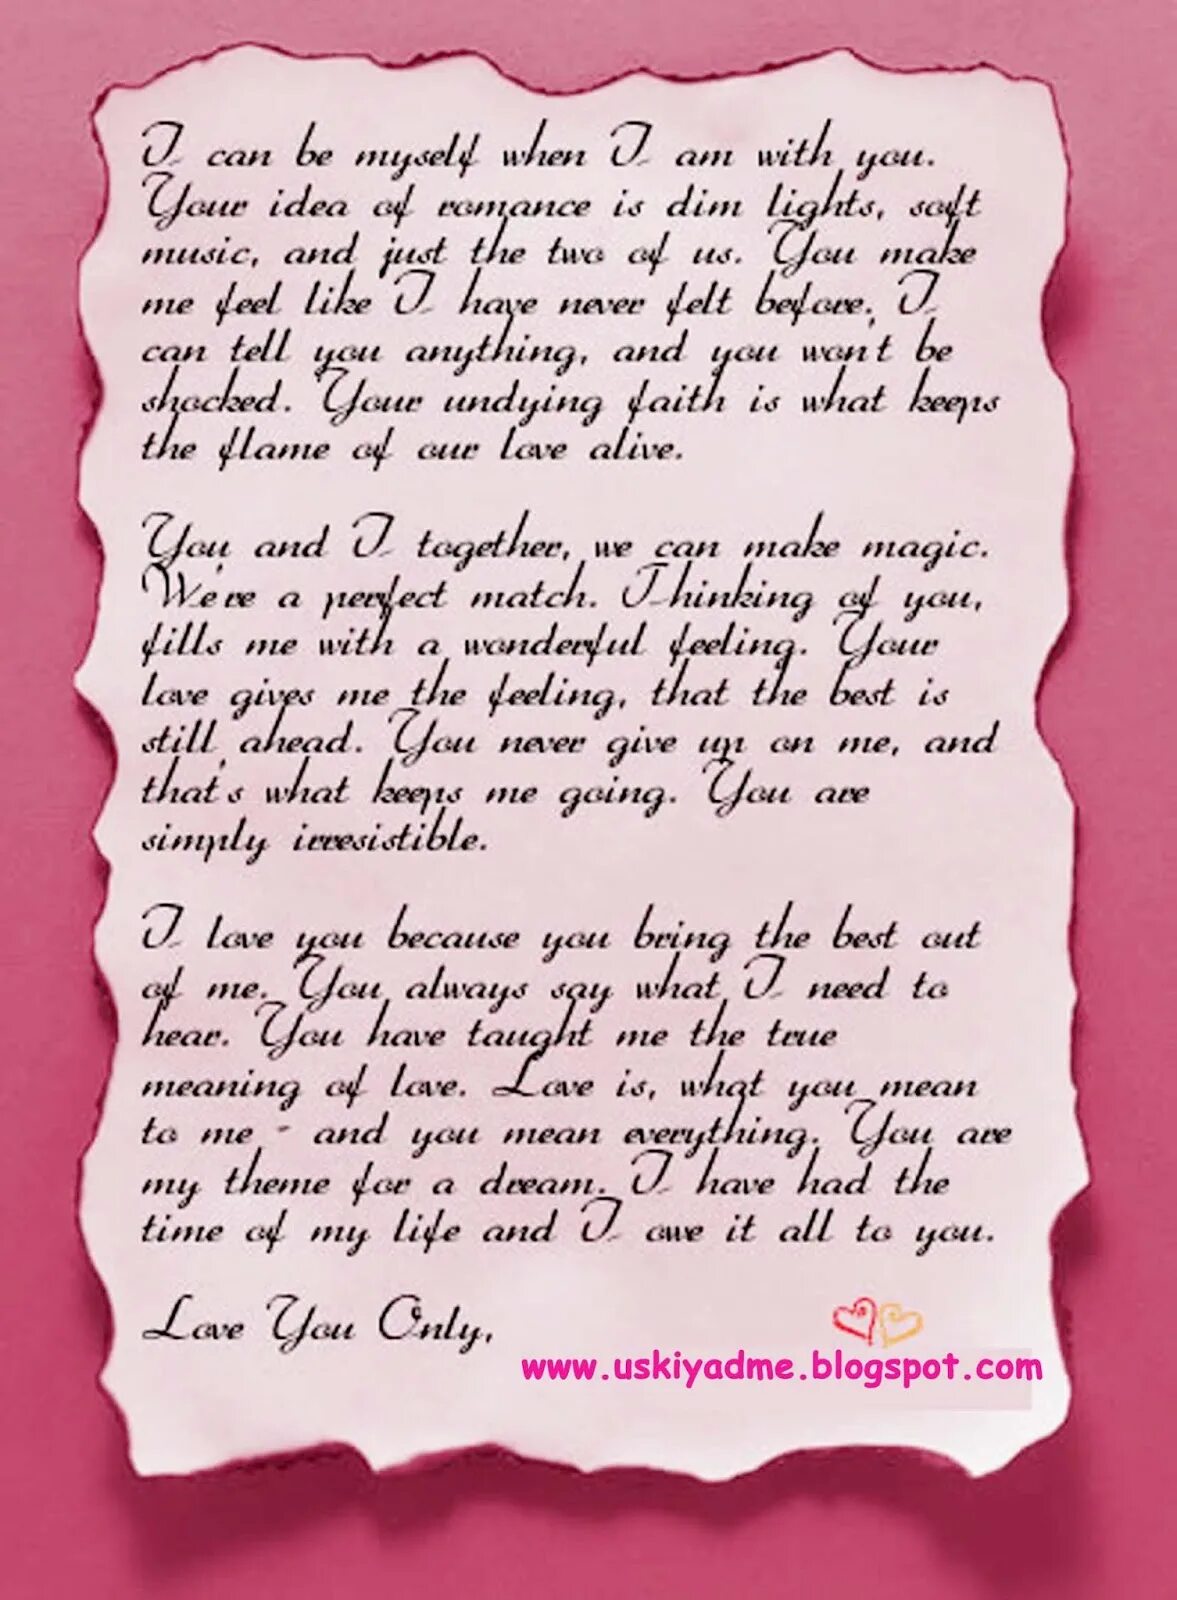 I can be myself when I am with you.
Your idea of romance is dim lights, soft
music, and just the two of us. You make
me feel like I have never felt before. I
can tell you anything, and you won't be
shocked. Your undying faith is what keeps
the flame of our love alive.
You and I together, we can make magic.
We're a perfect match. Thinking of you,
fills me with a wonderful feeling. Your
love gives me the feeling, that the best is
still ahead. You never give up on me, and
that's what keeps me going. You are
simply irresistible.
I love you because you bring the best out
of me. You always say what I need to
hear. You have taught me the true
meaning of love. Love is, what you mean
to me - and you mean everything. You are
my theme for a dream. I have had the
time of my life and I owe it all to you.
Love You Only,
www.uskiyadme.blogspot.com